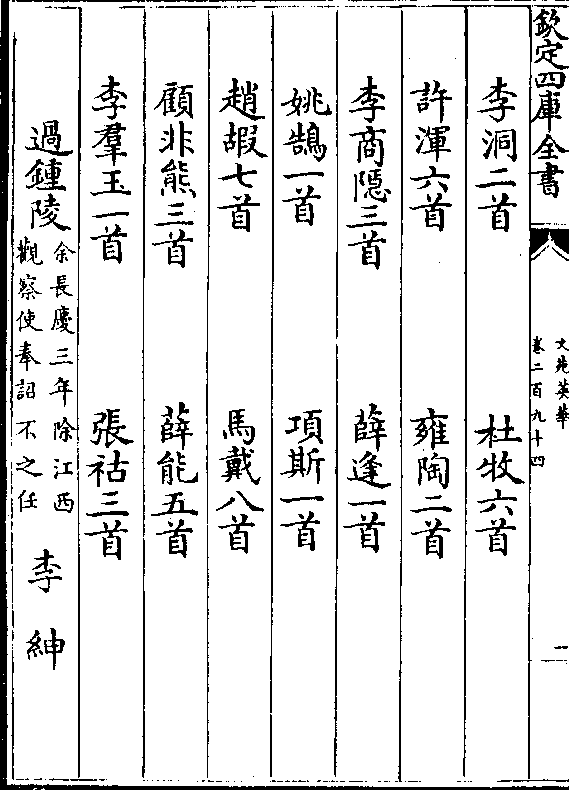 欽定四庫全書
文苑英華
卷二百九十四
一
李洞二首 杜牧六首
許渾六首 雍陶二首
李商隱三首 薛逢一首
姚鵠一首 項斯一首
趙嘏七首 馬戴八首
顧非熊三首 薛能五首
李羣玉一首 張祜三首
過鍾陵 余長慶三年除江西觀察使奉詔不之任 李紳